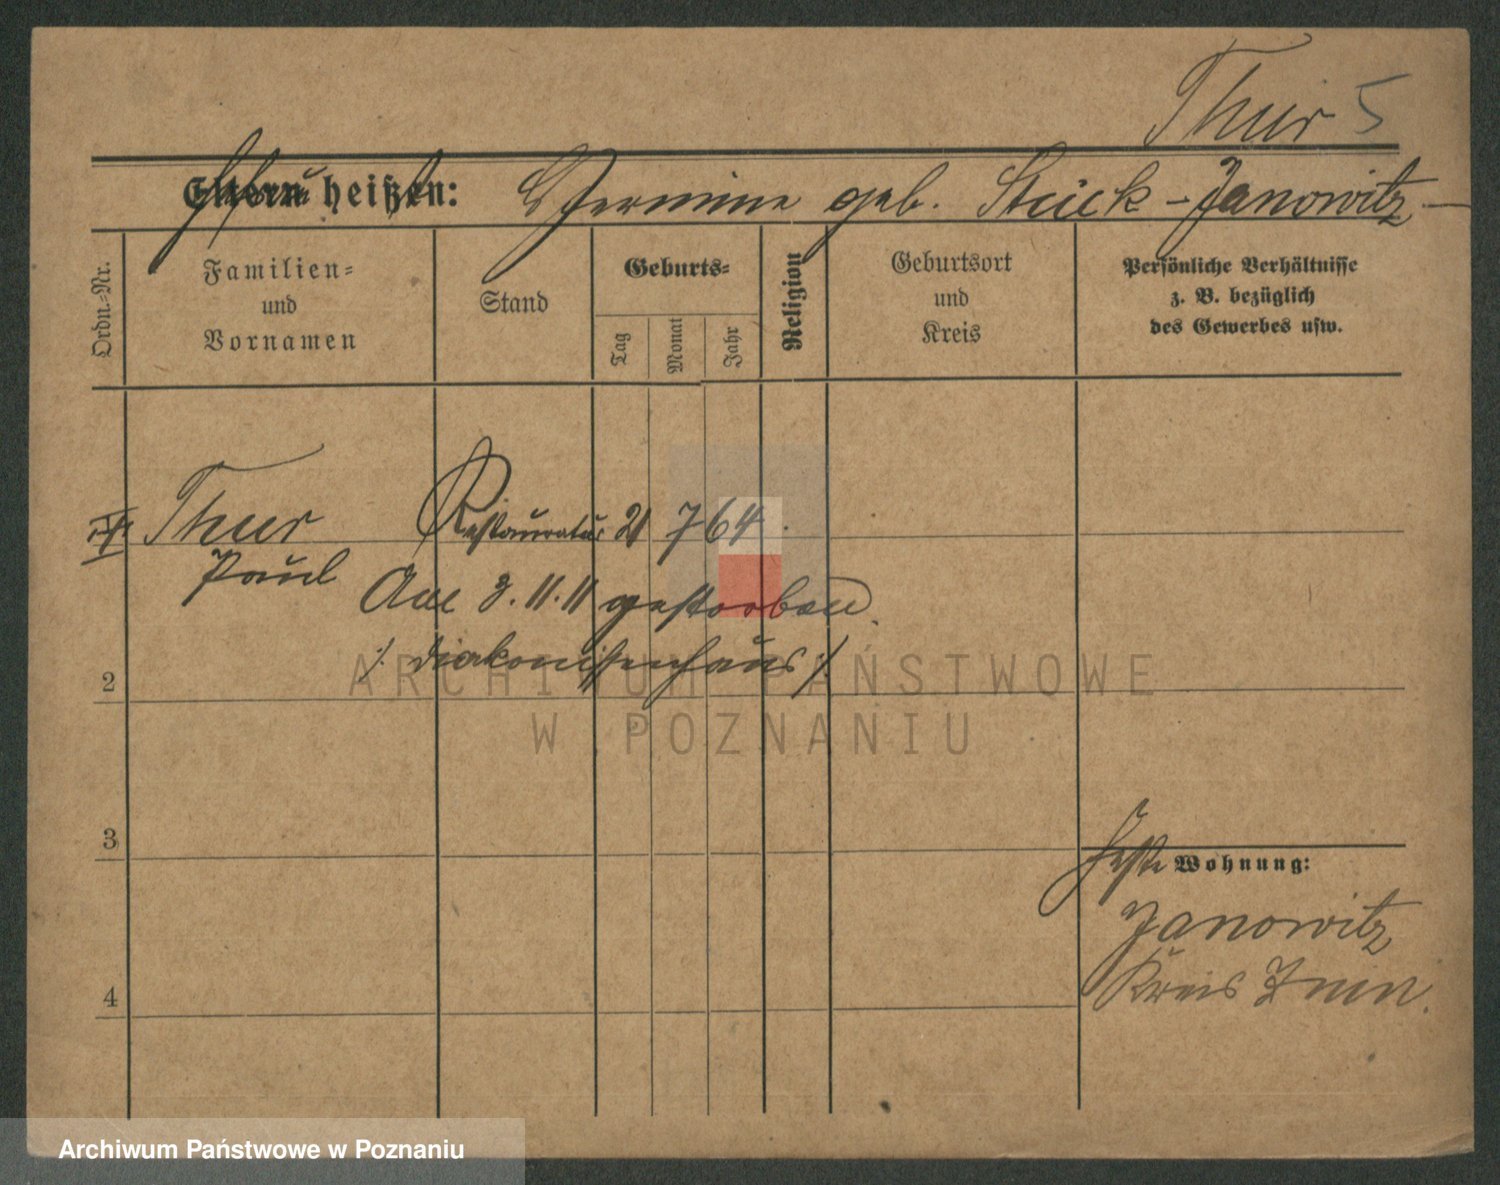 Thur 5
Eltern heißen: Hermine geb. Stück - Janowitz -
Ordn.-Nr.
Familien- und Vornamen
Stand
Geburts-
Tag
Monat
Jahr
Religion
Geburtsort und Kreis
Persönliche Verhältnisse z. B. bezüglich des Gewerbes usw.
Thur Restaurateur 21 7 64.
Paul
Am 3.11.11 gestorben.
/: Diakonissenhaus :/
2
3
feste Wohnung:
Janowitz
4
Kreis Znin.
ARCHIWUM PAŃSTWOWE
W POZNANIU
Archiwum Państwowe w Poznaniu